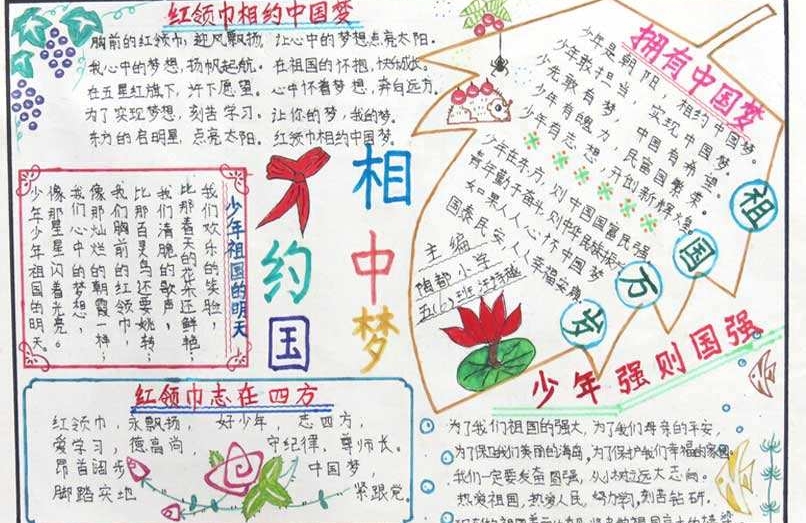 红领巾相约中国梦
胸前的红领巾,迎风飘扬,让心中的梦想点亮太阳。
我心中的梦想,扬帆起航。在祖国的怀抱,快乐成长。
在五星红旗下,许下愿望。心中怀着梦想,奔向远方。
为了实现梦想,刻苦学习。让你的梦,我的梦。
东方的启明星,点亮太阳。红领巾相约中国梦。
拥有中国梦
少年是朝阳,相约中国梦。
少年敢担当,实现中国梦。
少先歌有梦,中国有希望。
少年有魄力,民富国繁荣。
少年有志想,开创新辉煌。
少年在东方,则中国国富民强。
青年勤于奋斗,则中华民族振兴
如果人人心怀中国梦
国泰民安,人人幸福安康
祖国万岁
主编
陶都小学
五(6)班
相约中国梦
少年祖国的明天
我们欢乐的笑脸,
比那春天的花朵还鲜艳;
我们清脆的歌声,
比那百灵鸟还要婉转;
我们胸前的红领巾,
像那灿烂的朝霞一样;
我们心中的梦想,
像那星星闪着光亮。
少年少年祖国的明天。
红领巾志在四方
红领巾,永飘扬,好少年,志四方,
爱学习,德高尚,守纪律,尊师长。
昂首阔步 中国梦,
脚踏实地 紧跟党。
少年强则国强
为了我们祖国的强大,为了我们母亲的平安,
为了保卫我们美丽的海岛,为了保护我们幸福的家园。
我们一定要发奋图强,从小树立远大志向。
热爱祖国,热爱人民,努力学习,刻苦钻研。